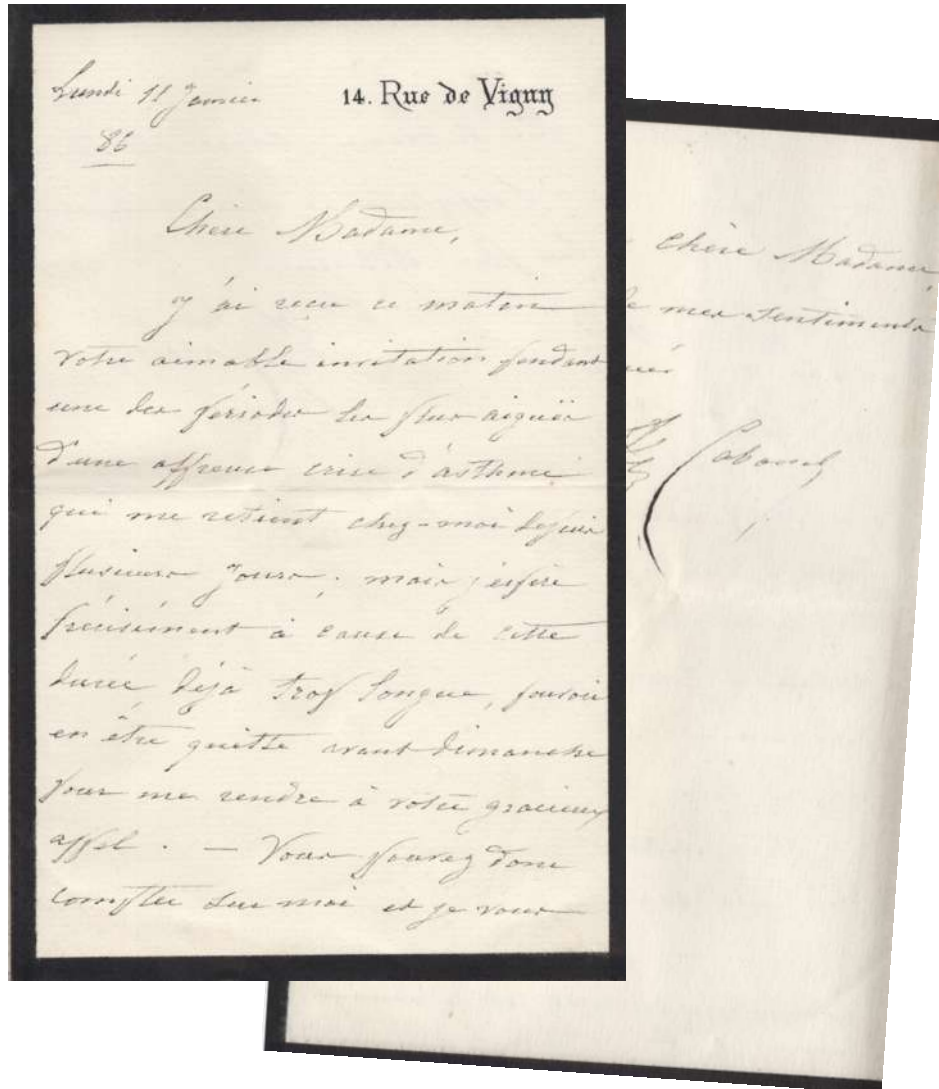 Lundi 11 Janvier
14. Rue de Vigny
86
Chère Madame,
j'ai reçu ce matin
votre aimable invitation pendant
une des périodes les plus aiguës
d'une affreuse crise d'asthme
qui me retient chez-moi depuis
plusieurs jours; mais j'espère
précisément à cause de cette
durée déjà trop longue, pouvoir
en être quitte avant dimanche
pour me rendre à votre gracieux
appel. — Vous pouvez donc
compter sur moi et je vous
chère Madame,
de mes sentiments
Cabanel